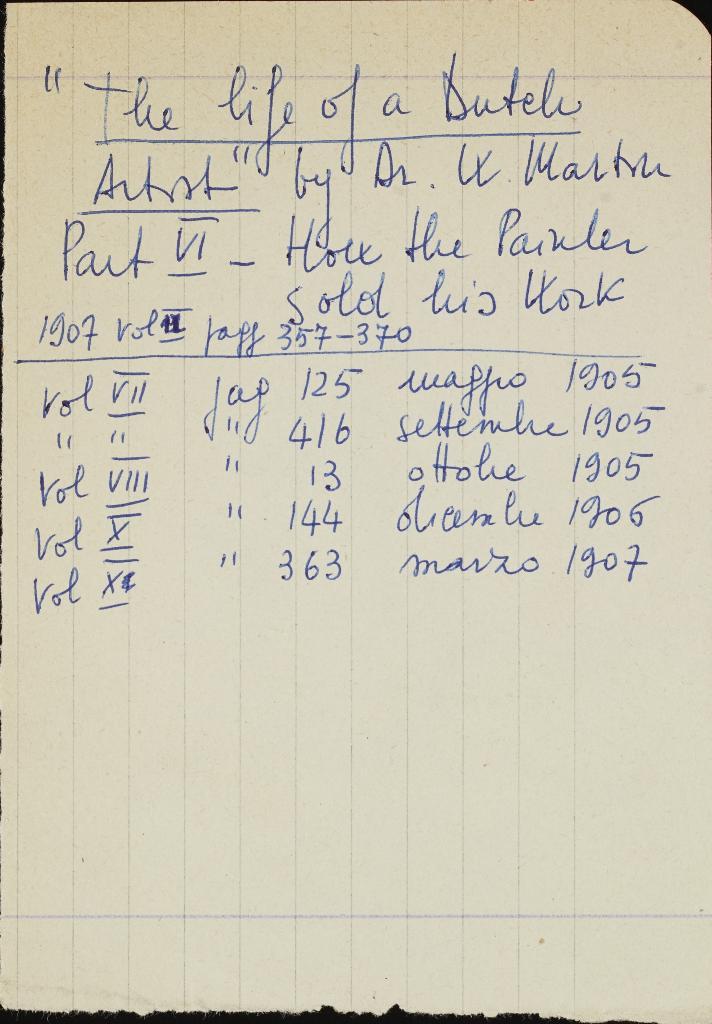 "The life of a Dutch
Artist" by Dr. W. Martin
Part VI - How the Painter
sold his Work
1907 vol pagg 357-370
Vol VII pag 125 maggio 1905
" " " 416 settembre 1905
Vol VIII " 13 ottobre 1905
Vol X " 144 dicembre 1906
Vol " 363 marzo 1907